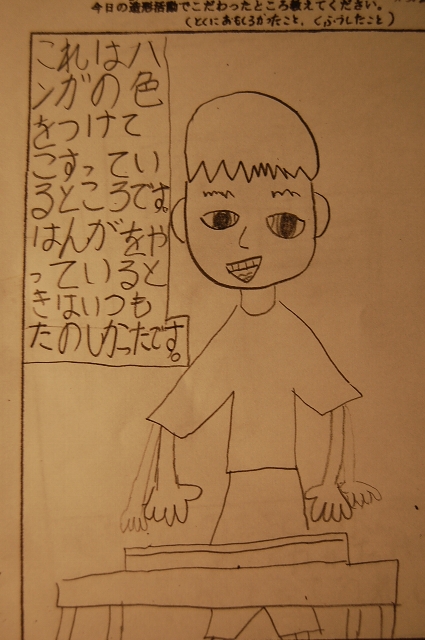 今日の造形活動でこだわったところ教えてください。
(とくにおもしろかったこと、くふうしたこと)
これはハ
ンがの色
をつけて
こすってい
るところです。
はんがをや
っていると
きはいつも
たのしかったです。